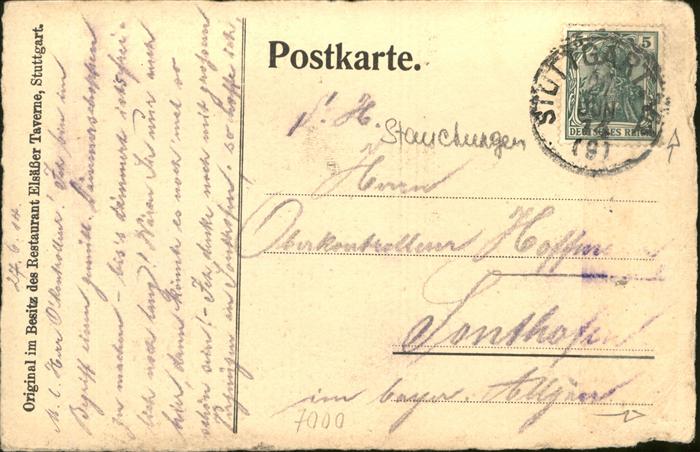 Original im Besitz des Restaurant Elsäßer Taverne, Stuttgart.
27. 6. 14.
M. l. Herr O'kontrolleur! Ich bin im
Begriff einen gemütl. Dämmerschoppen
zu machen – bis's dämmert ists frei-
lich noch lang! Wären Sie nur auch
hier, dann könnte es noch 'mal so
schön sein! – Ich denke noch mit großem
Vergnügen an Sonthofen, so hoffe ich,
Postkarte.
S. H.
Stauchungen
Herrn
Oberkontrolleur
Sonthofen
im bayer. Allgäu
7000
5
DEUTSCHES REICH
STUTTGART
JUN
(9)